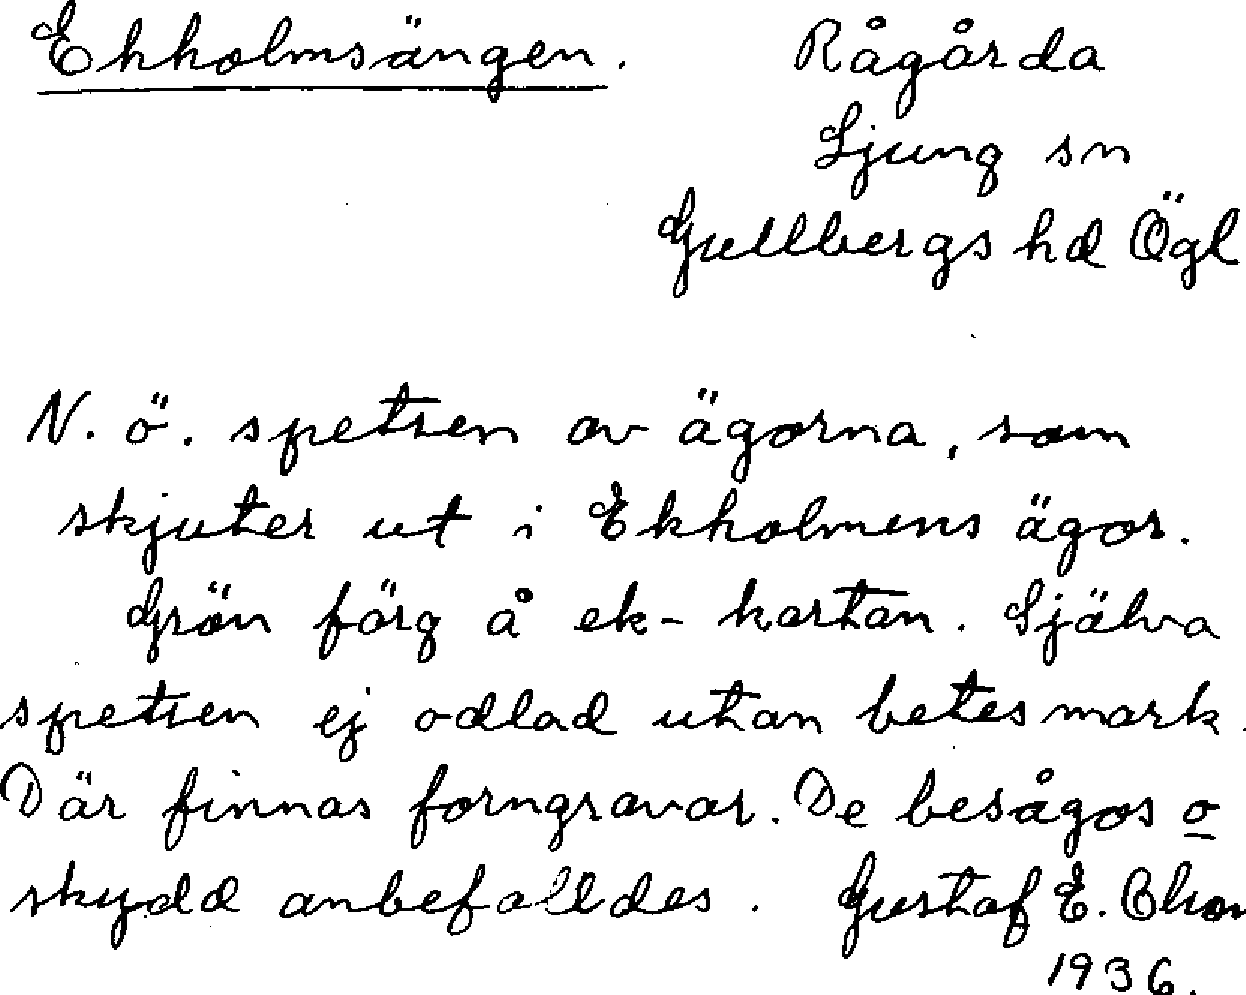 Ekholmsängen. Rågårda
Ljung sn
Gullbergs hd Ögl
N. ö. spetsen av ägorna, som
skjuter ut i Ekholmens ägor.
Grön färg å ek-kartan. Själva
spetsen ej odlad utan betesmark.
Där finnas forngravar. De besågos o
skydd anbefalldes. Gustaf E. Olson
1936.